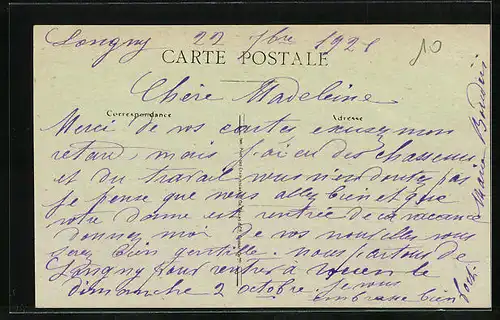 Longny 22 7bre 1921
10
CARTE POSTALE
Chère Madeleine
Correspondance Adresse
Merci de vos cartes excusez mon
retard, mais j'ai eu des chasseurs
et du travail vous n'en doutez pas
je pense que vous allez bien et que
votre dame est rentrée de vacances
donnez moi de vos nouvelles vous
serez bien gentille. nous partons de
Longny pour rentrer à le
dimanche 2 octobre. Je vous
embrasse bien
fort. Maria